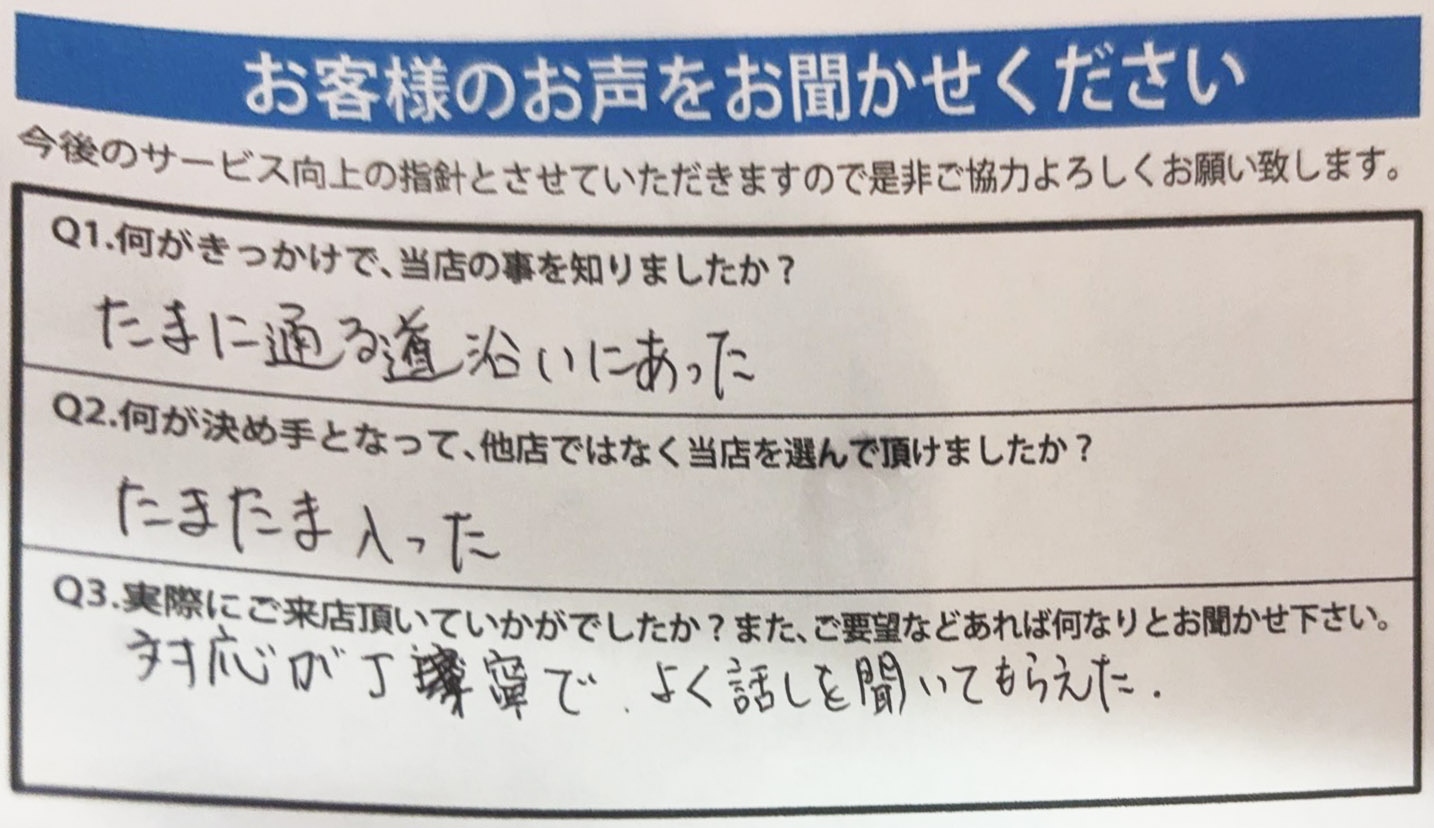 お客様のお声をお聞かせください
今後のサービス向上の指針とさせていただきますので是非ご協力よろしくお願い致します。
Q1.何がきっかけで、当店の事を知りましたか？
たまに通る道沿いにあった
Q2.何が決め手となって、他店ではなく当店を選んで頂けましたか？
たまたま入った
Q3.実際にご来店頂いていかがでしたか？また、ご要望などあれば何なりとお聞かせ下さい。
対応が丁寧で、よく話しを聞いてもらえた.